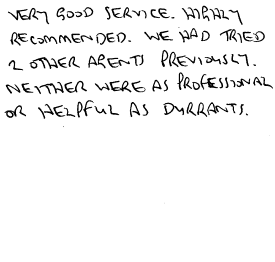 VERY GOOD SERVICE. HIGHLY
RECOMMENDED. WE HAD TRIED
2 OTHER AGENTS PREVIOUSLY.
NEITHER WERE AS PROFESSIONAL
OR HELPFUL AS DURRANTS.